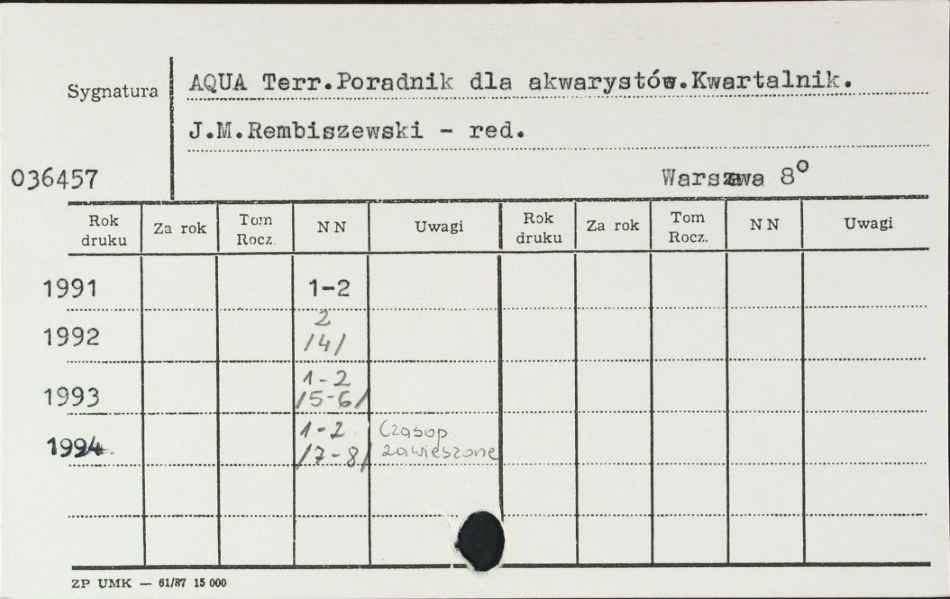 Sygnatura AQUA Terr.Poradnik dla akwarystów.Kwartalnik.
J.M.Rembiszewski - red.
036457 Warszawa 8°
Rok druku Za rok Tom Rocz. N N Uwagi Rok druku Za rok Tom Rocz. N N Uwagi
1991 1-2
1992 2 /4/
1993 1-2 /5-6/
1994 1-2 /7-8/ Czasop zawieszone
ZP UMK — 61/87 15 000